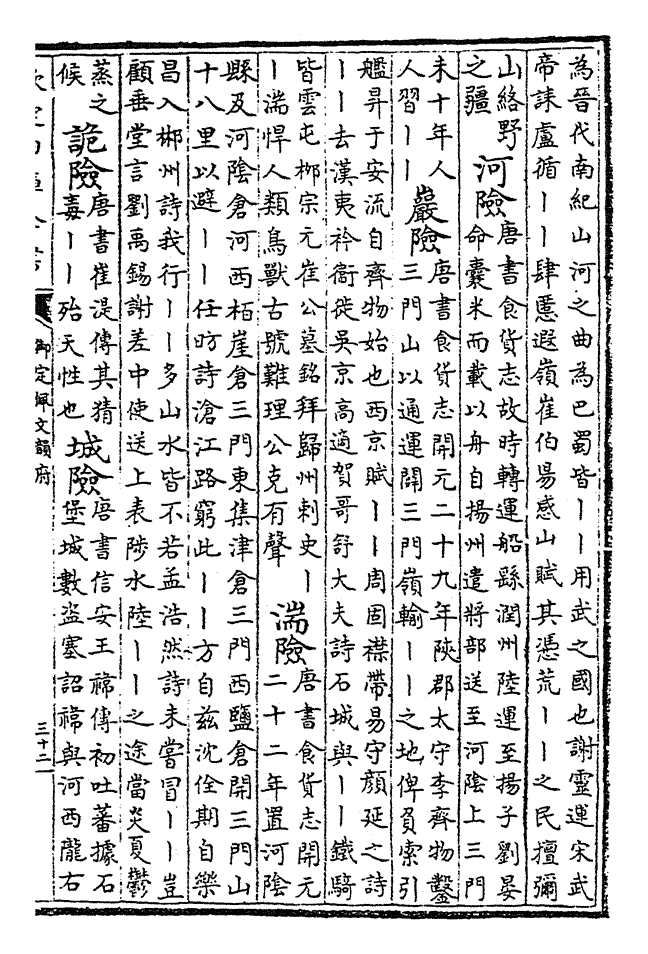 為晉代南紀山河之曲為巴蜀皆丨丨用武之國也謝靈運宋武
帝誄盧循丨丨肆慝遐嶺崔伯昜感山賦其憑荒丨丨之民擅彌
山絡野
之疆
河險
唐書食貨志故時轉運船繇潤州陸運至揚子劉晏
命囊米而載以舟自揚州遣將部送至河陰上三門
未十年人
人習丨丨
巖險
唐書食貨志開元二十九年陜郡太守李齊物鑿
三門山以通運闢三門嶺輸丨丨之地俾負索引
艦昇于安流自齊物始也西京賦丨丨周固襟帶易守顔延之詩
丨丨去漢夷衿衞徙吳京高適賀哥舒大夫詩石城與丨丨鐵騎
皆雲屯栁宗元崔公墓銘拜歸州刺史丨
丨湍悍人類鳥獸古號難理公克有聲
湍險
唐書食貨志開元
二十二年置河陰
縣及河陰倉河西栢崖倉三門東集津倉三門西鹽倉開三門山
十八里以避丨丨任昉詩滄江路窮此丨丨方自兹沈佺期自樂
昌入郴州詩我行丨丨多山水皆不若孟浩然詩未嘗冒丨丨豈
顧垂堂言劉禹錫謝差中使送上表陟水陸丨丨之途當炎夏鬱
蒸之
候
詭險
唐書崔湜傳其猜
毒丨丨殆天性也
城險
唐書信安王禕傳初吐蕃據石
堡城數盜塞詔禕與河西隴右
御定佩文韻府
三十二